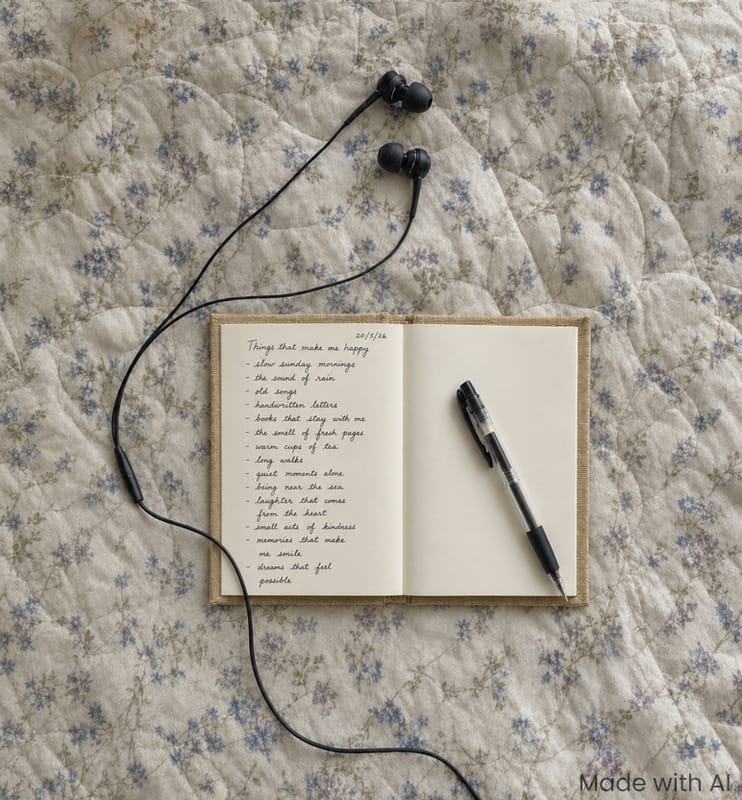 20/5/26
Things that make me happy
- slow sunday mornings
- the sound of rain
- old songs
- handwritten letters
- books that stay with me
- the smell of fresh pages
- warm cups of tea
- long walks
- quiet moments alone
- being near the sea
- laughter that comes
from the heart
- small acts of kindness
- memories that make
me smile
- dreams that feel
possible
Made with AI